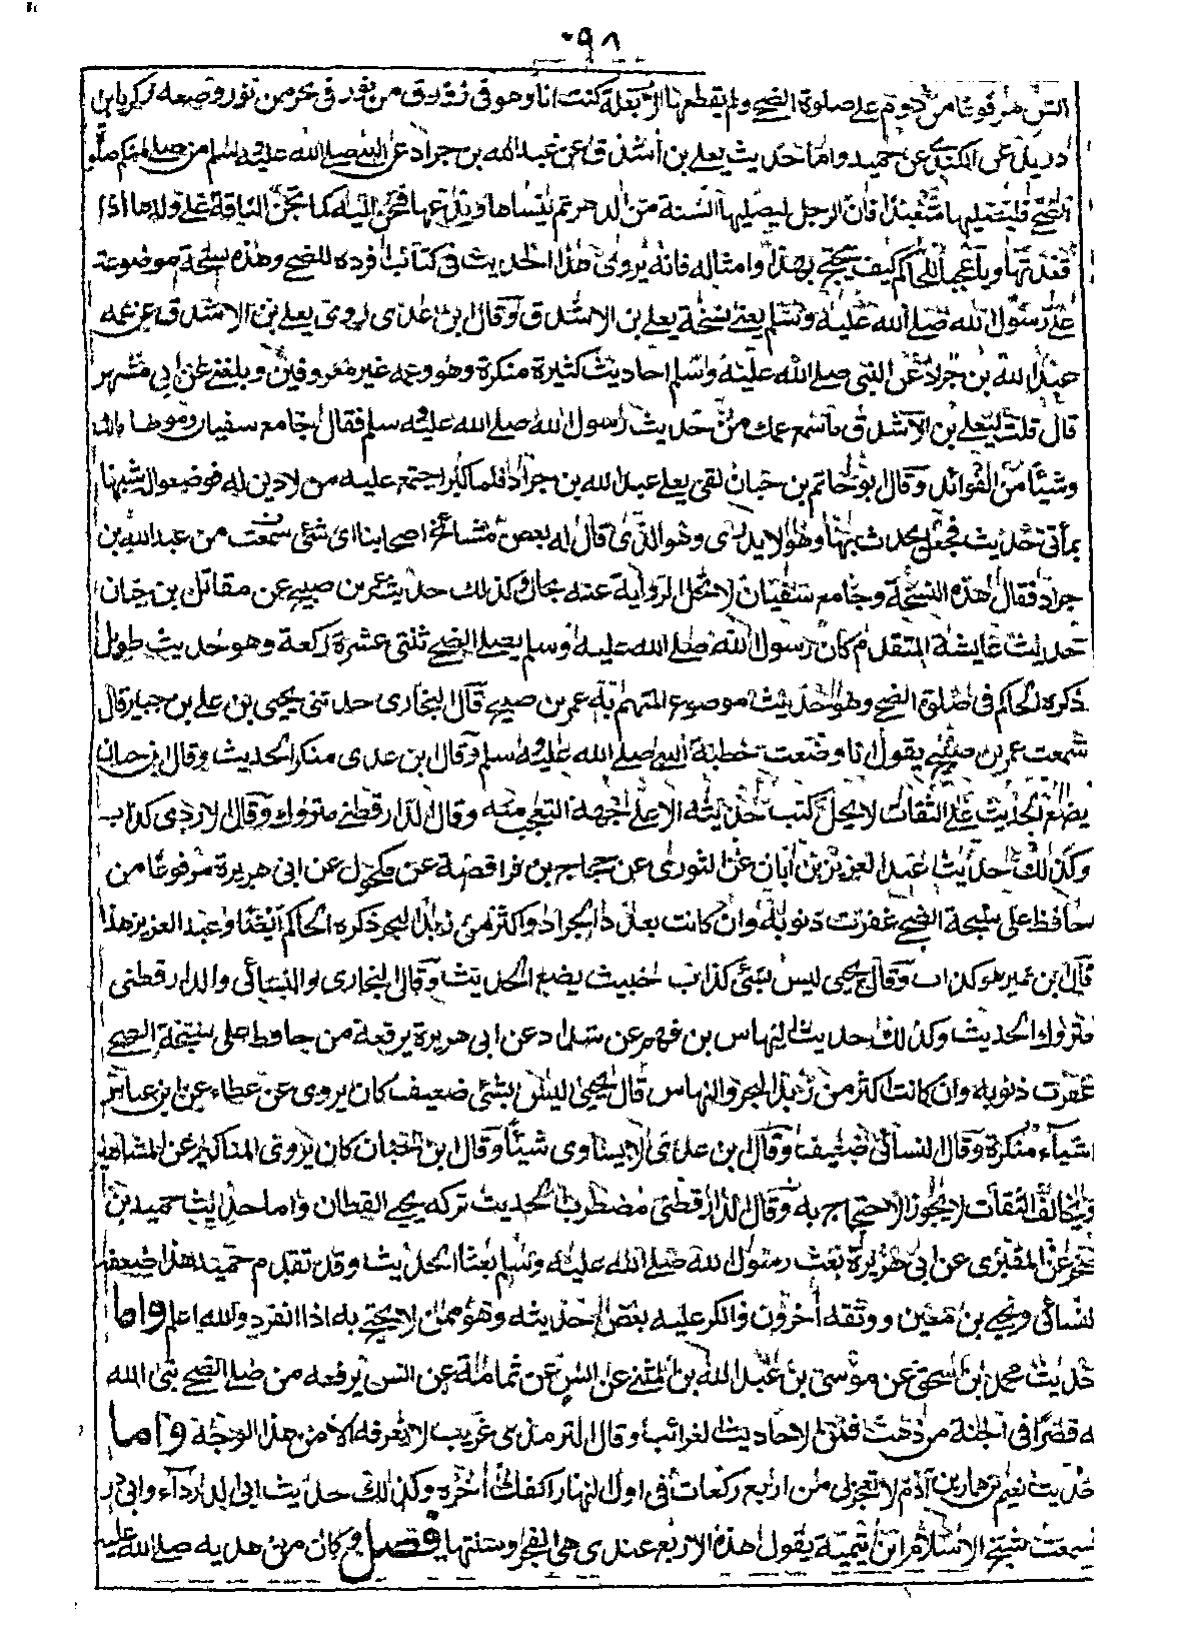 ٩٨
انس مرفوعا من دوام على صلوة الضحى ولم يقطعها الا من علة كنت انا وهو فى زورق من نور فى بحر من نور وضعه زكريا بن
دريد عن الكندى عن حميد واما حديث يعلى بن اشدق عن عبد الله بن جراد عن النبى صلى الله عليه وسلم من صلى منكم صلوة
الضحى فليصليها متعبدا فان الرجل ليصليها السنة من الدهر ثم ينساها ويدعها فتحن اليه كما تحن الناقة على ولدها اذا
فقدتها ويا عجبا للحاكم كيف يحتج بهذا وامثاله فانه يروى هذا الحديث فى كتاب افرده للضحى وهذه نسخة موضوعة
على رسول الله صلى الله عليه وسلم يعنى نسخة يعلى بن الاشدق وقال ابن عدى روى يعلى بن الاشدق عن عمه
عبد الله بن جراد عن النبى صلى الله عليه وسلم احاديث كثيرة منكرة وهو وعمه غير معروفين وبلغنى عن ابى مسهر
قال قلت ليعلى بن الاشدق ما سمع عمك من حديث رسول الله صلى الله عليه وسلم فقال جامع سفيان وموطا مالك
وشيئا من الفوائد وقال ابو حاتم بن حبان لقى يعلى عبد الله بن جراد فلما كبر اجتمع عليه من لا دين له فوضعوا له شبيها
بمأتى حديث فجعل يحدث بها وهو لا يدرى وهو الذى قال له بعض مشائخ اصحابنا اى شئ سمعت من عبد الله بن
جراد فقال هذه النسخة وجامع سفيان لا تحل الرواية عنه بحال وكذلك حديث عمر بن صبيح عن مقاتل بن حيان
حديث عايشة المتقدم كان رسول الله صلى الله عليه وسلم يصلى الضحى ثنتى عشرة ركعة وهو حديث طويل
ذكره الحاكم فى صلوة الضحى وهو حديث موضوع المتهم به عمر بن صبيح قال البخارى حدثنى يحيى بن على بن جبير قال
سمعت عمر بن صبيح يقول انا وضعت خطبة النبى صلى الله عليه وسلم وقال ابن عدى منكر الحديث وقال ابن حبان
يضع الحديث على الثقات لا يحل كتب حديثه الا على جهة التعجب منه وقال الدارقطنى متروك وقال الازدى كذاب
وكذلك حديث عبد العزيز بن ابان عن الثورى عن حجاج بن فرافصة عن مكحول عن ابى هريرة مرفوعا من
حافظ على سبحة الضحى غفرت ذنوبه وان كانت بعدد الجراد واكثر من زبد البحر ذكره الحاكم ايضا وعبد العزيز هذا
قال ابن نمير هو كذاب وقال يحيى ليس بشئ كذاب خبيث يضع الحديث وقال البخارى والنسائى والدارقطنى
متروك الحديث وكذلك حديث النهاس بن قهم عن شداد عن ابى هريرة يرفعه من حافظ على سبحة الضحى
غفرت ذنوبه وان كانت اكثر من زبد البحر والنهاس قال يحيى ليس بشئ ضعيف كان يروى عن عطاء عن ابن عباس
اشياء منكرة وقال النسائى ضعيف وقال ابن عدى لا يساوى شيئا وقال ابن حبان كان يروى المناكير عن المشاهير
ويخالف الثقات لا يجوز الاحتجاج به وقال الدارقطنى مضطرب الحديث تركه يحيى القطان واما حديث حميد بن
صخر عن المقبرى عن ابى هريرة بعث رسول الله صلى الله عليه وسلم بعثا الحديث وقد تقدم حميد هذا ضعفه
النسائى ويحيى بن معين ووثقه آخرون وانكر عليه بعض حديثه وهو ممن لا يحتج به اذا انفرد والله اعلم واما
حديث محمد بن اسحق عن موسى بن عبد الله بن المثنى عن انس عن ثمامة عن انس يرفعه من صلى الضحى بنى الله
له قصرا فى الجنة من ذهب فمن الاحاديث الغرائب وقال الترمذى غريب لا نعرفه الا من هذا الوجه واما
حديث نعيم بن همار ابن آدم لا تعجزلى من اربع ركعات فى اول النهار اكفك آخره وكذلك حديث ابى الدرداء وابى ذر
سمعت شيخ الاسلام ابن تيمية يقول هذه الاربع عندى هى الفجر وسنتها فصل وكان من هديه صلى الله عليه